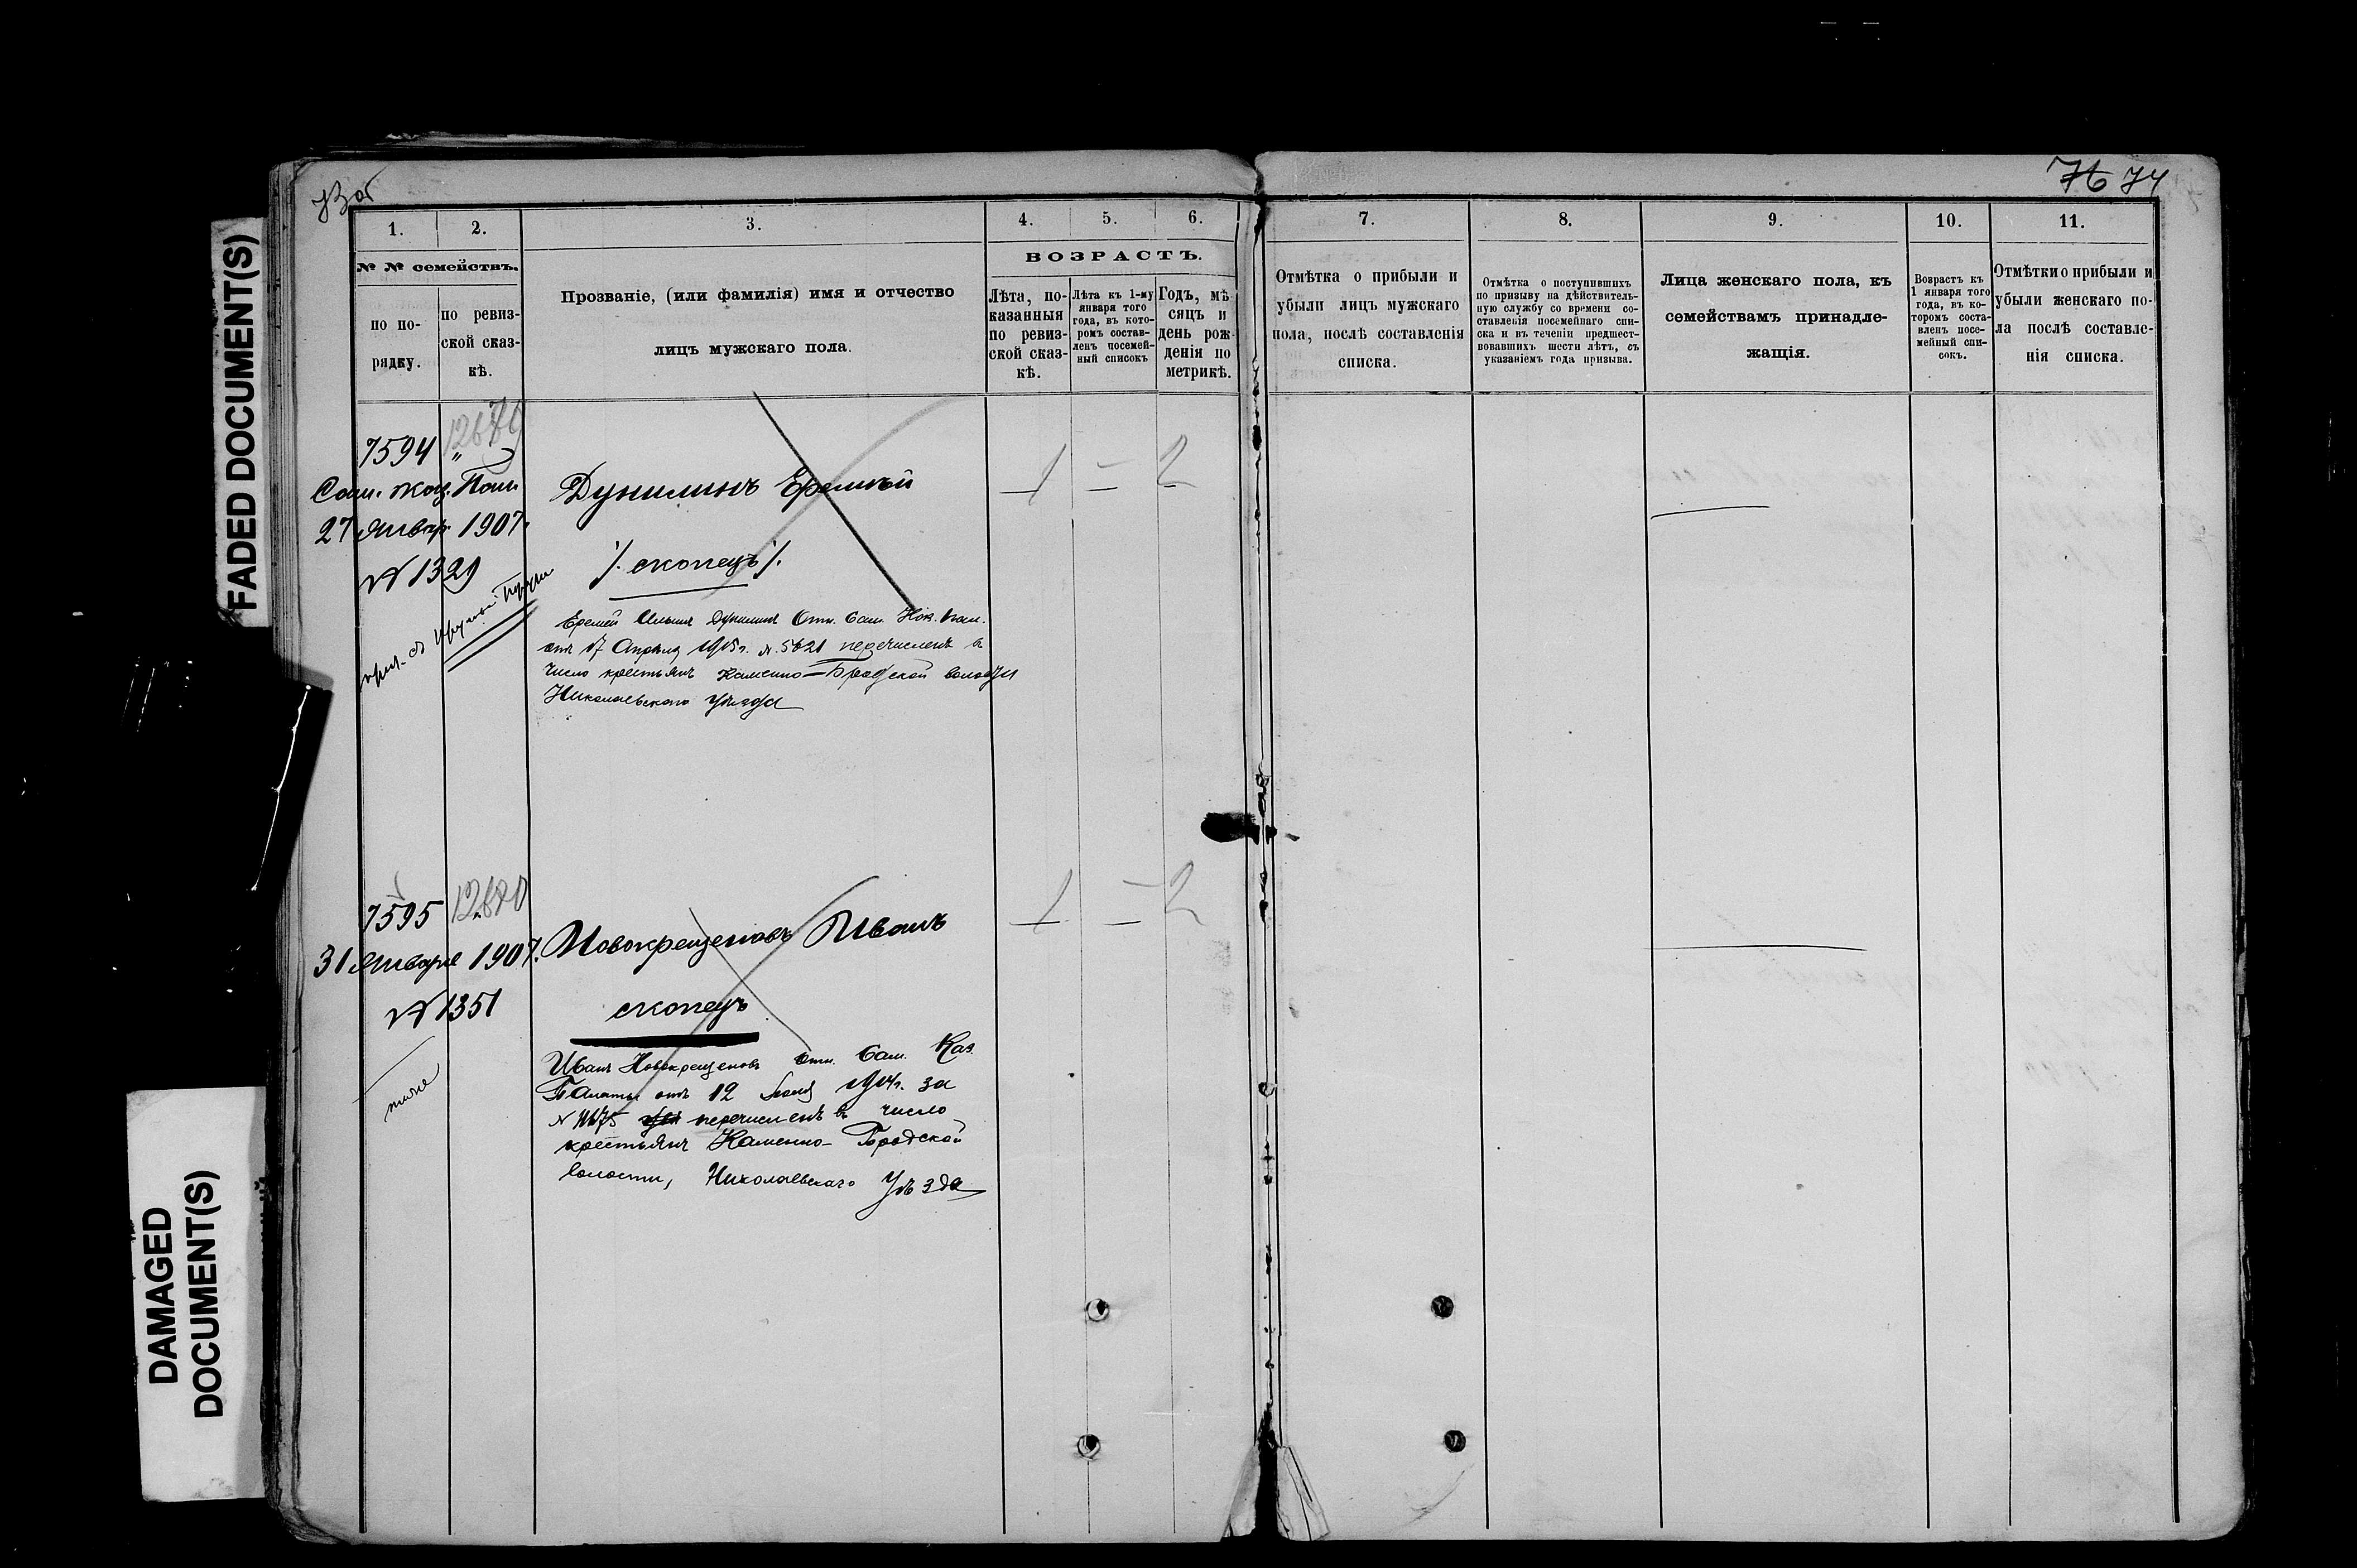 FADED DOCUMENT(S)
DAMAGED
DOCUMENT(S)
73 об
76 74
1.
2.
3.
4.
5.
6.
7.
8.
9.
10.
11.
№ № семействъ.
по по-
рядку.
по ревиз-
ской сказ-
кѣ.
Прозваніе, (или фамилія) имя и отчество
лицъ мужскаго пола.
ВОЗРАСТЪ.
Лѣта, по-
казанныя
по ревиз-
ской сказ-
кѣ.
Лѣта къ 1-му
января того
года, въ кото-
ромъ состав-
ленъ посемей-
ный списокъ
Годъ, мѣ-
сяцъ и
день рож-
денія по
метрикѣ.
Отмѣтка о прибыли и
убыли лицъ мужскаго
пола, послѣ составленія
списка.
Отмѣтка о поступившихъ
по призыву на дѣйствитель-
ную службу со времени со-
ставленія посемейнаго спи-
ска и въ теченіи предшест-
вовавшихъ шести лѣтъ, съ
указаніемъ года призыва.
Лица женскаго пола, къ
семействамъ принадле-
жащія.
Возрастъ къ
1 января того
года, въ ко-
торомъ соста-
вленъ посе-
мейный спи-
сокъ.
Отмѣтки о прибыли и
убыли женскаго по-
ла послѣ составле-
нія списка.
7594
Сам. каз. Пал.
27 Январ. 1907.
№ 1329
Дунилинъ Еремѣй
/. скопецъ /.
1 = 2
Еремей Дунилинъ Отн. Сам. Каз. Пал.
отъ 17 Апрѣля 1915 г. № 5621 перечисленъ в
число крестьянъ Каменно-Бродской волости
Николаевскаго Уѣзда
7595
31 Января 1907.
№ 1351
тоже
Новокрещеновъ Иванъ
скопецъ
1 = 2
Иванъ Новокрещеновъ Отн. Сам. Каз.
Палаты отъ 12 за
№ перечисленъ въ число
крестьянъ Каменно-Бродской
волости, Николаевскаго Уѣзда